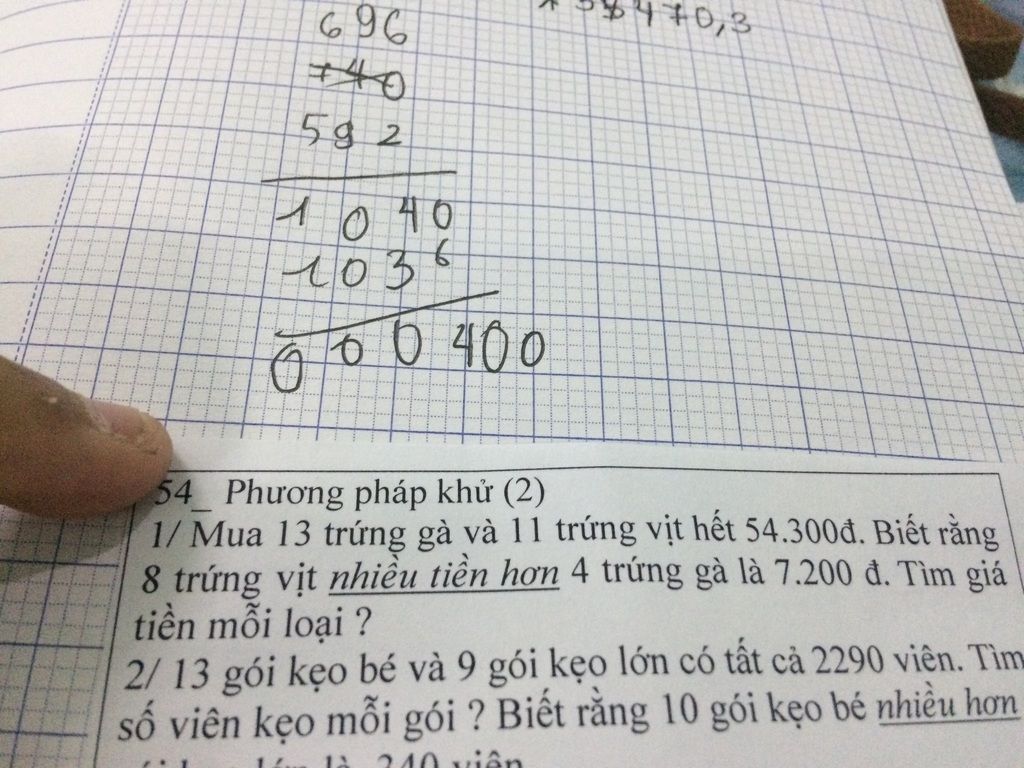 470,3
696
740
592
1040
1036
000400
54_ Phương pháp khử (2)
1/ Mua 13 trứng gà và 11 trứng vịt hết 54.300đ. Biết rằng
8 trứng vịt nhiều tiền hơn 4 trứng gà là 7.200 đ. Tìm giá
tiền mỗi loại ?
2/ 13 gói kẹo bé và 9 gói kẹo lớn có tất cả 2290 viên. Tìm
số viên kẹo mỗi gói ? Biết rằng 10 gói kẹo bé nhiều hơn
gói kẹo lớn là 240 viên